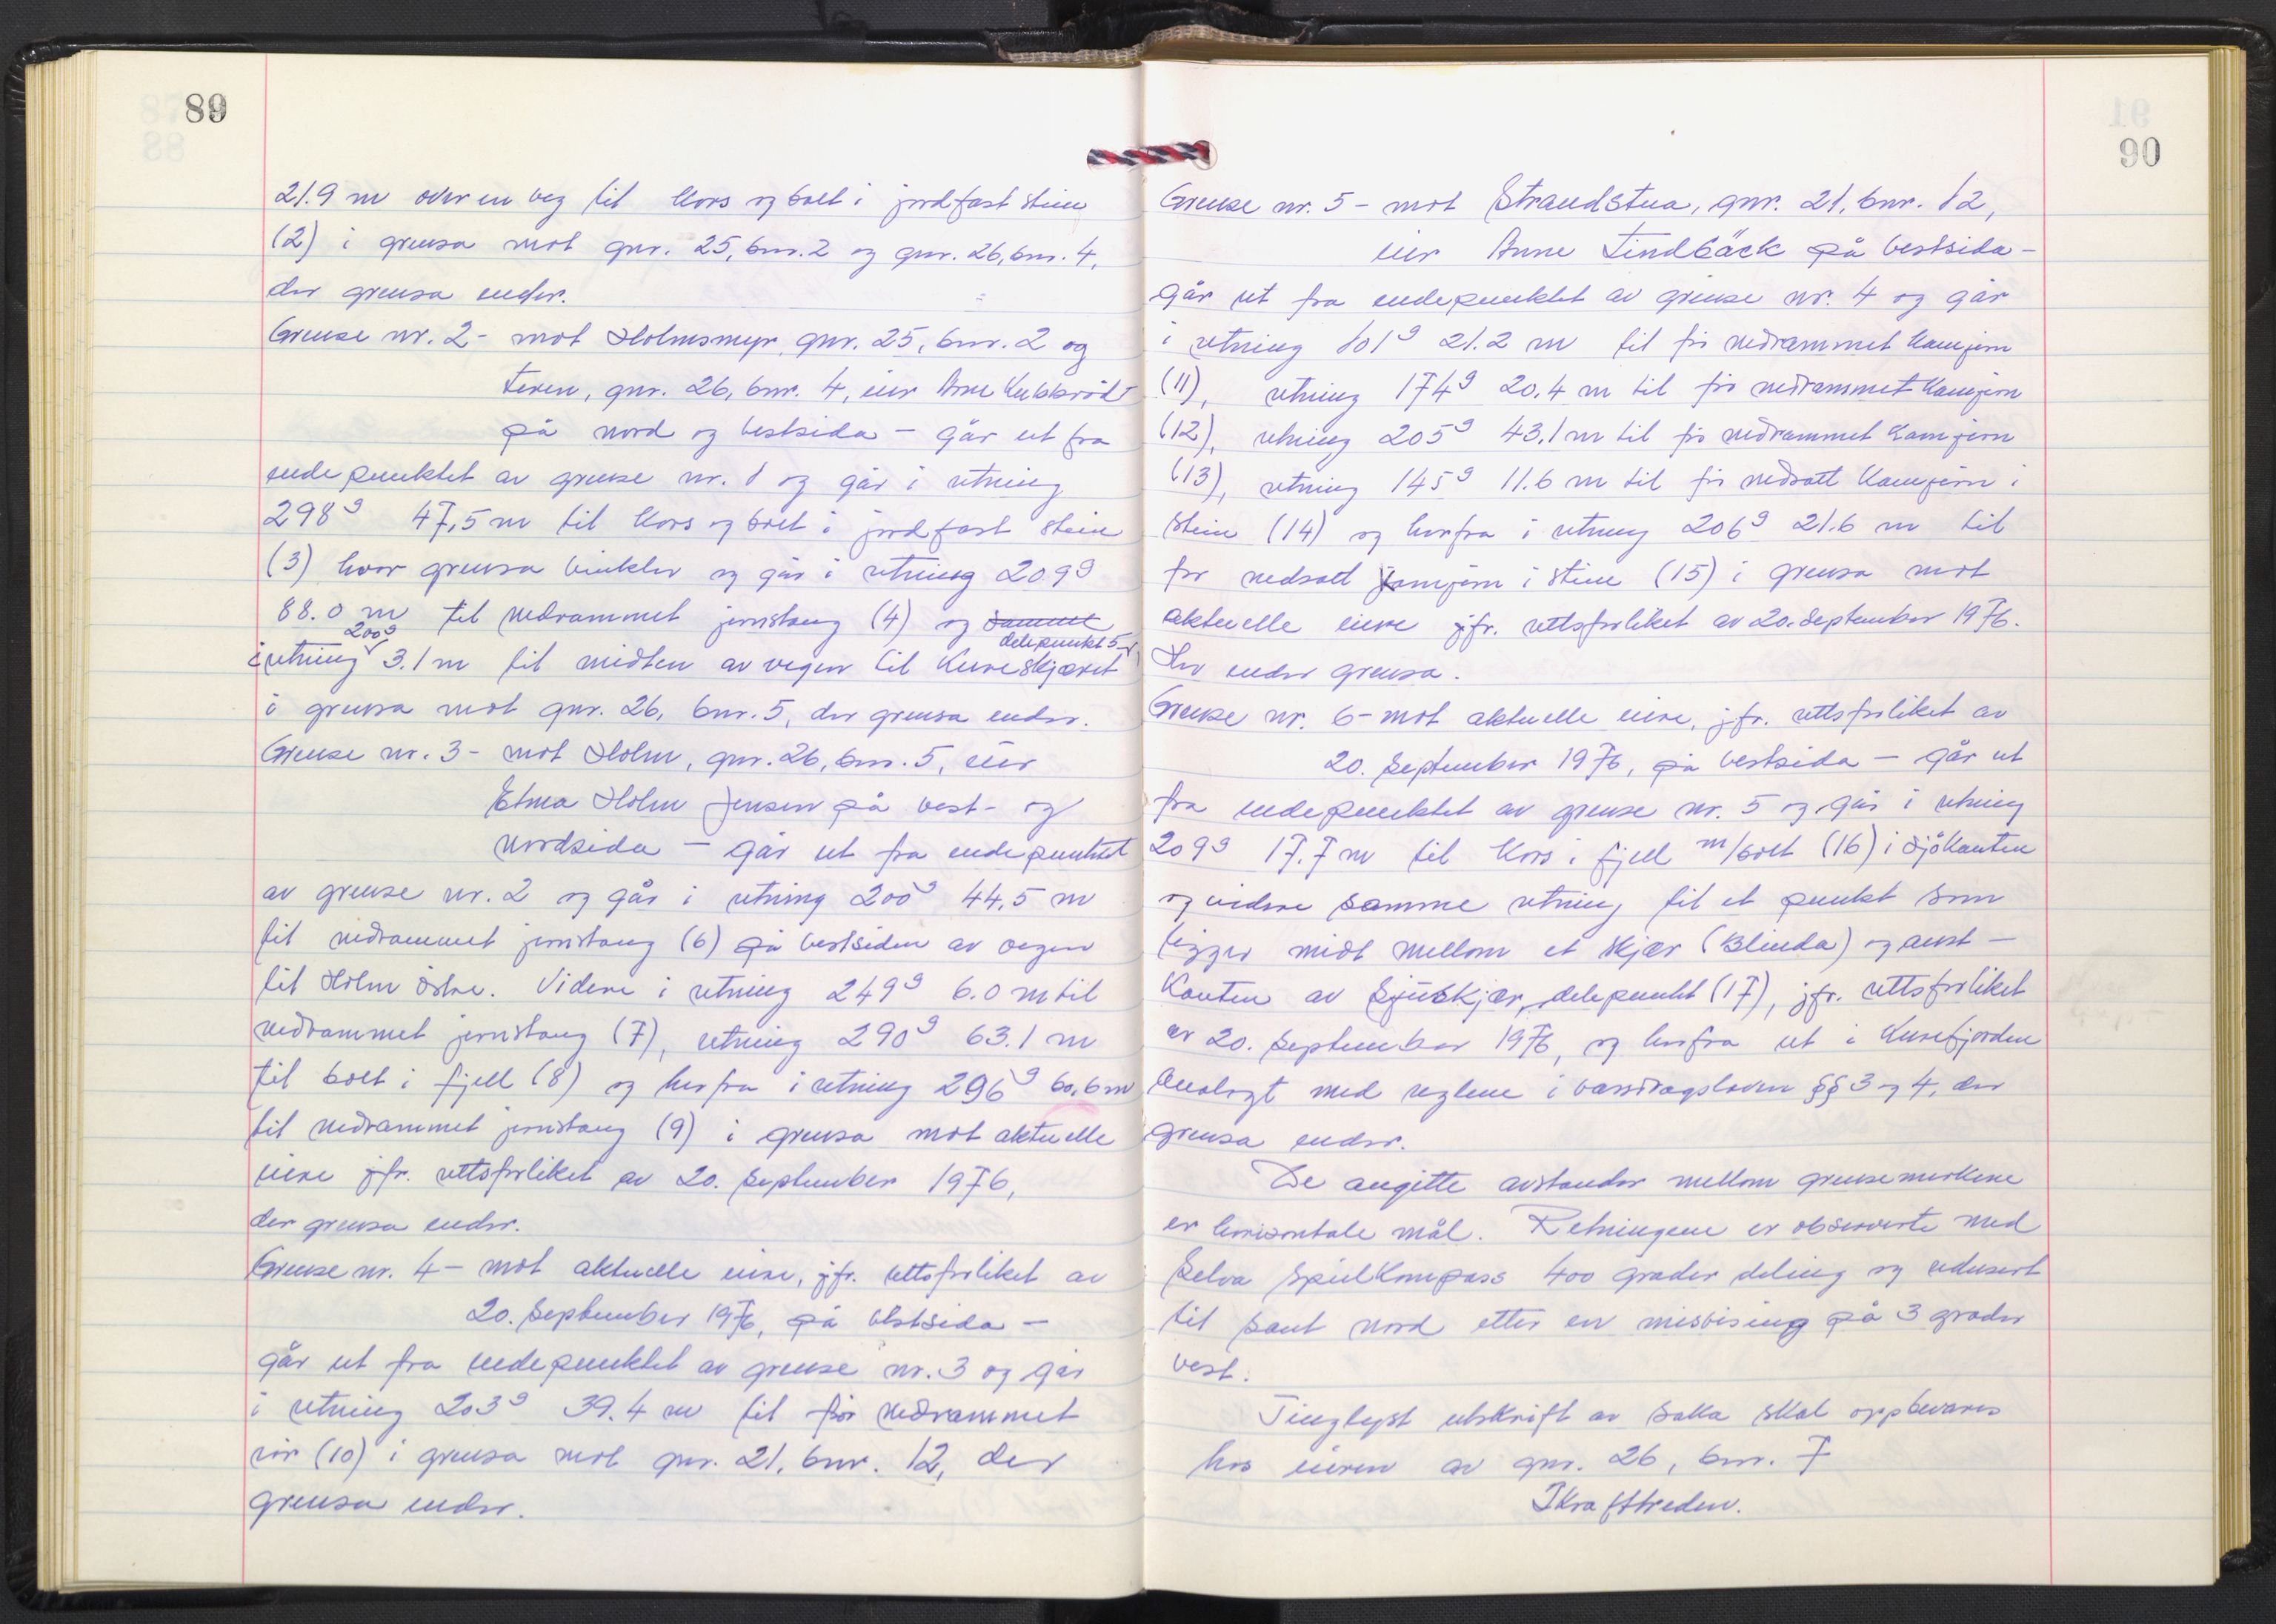 89
21.9 m over en veg til kors og bolt i jordfast stein
(2) i grensa mot gnr. 25, bnr. 2 og gnr. 26, bnr. 4,
der grensa ender.
Grense nr. 2 - mot Holmsmyr, gnr. 25, bnr. 2 og
gnr. 26, bnr. 4, eier Arne
på nord og vestsida - går ut fra
endepunktet av grense nr. 1 og går i retning
298g 47,5 m til kors og bolt i jordfast stein
(3) hvor grensa vinkler og går i retning 209g
88.0 m til nedrammet jernstang (4) og samme
i retning 200g 3.1 m til midten av vegen til Kureskjæret delepunkt 5
i grensa mot gnr. 26, bnr. 5, der grensa ender.
Grense nr. 3 - mot Holm, gnr. 26, bnr. 5, eier
Elna Holm Jensen på vest- og
nordsida - går ut fra endepunktet
av grense nr. 2 og går i retning 200g 44,5 m
til nedrammet jernstang (6) på vestsiden av vegen
til Holm østre. Videre i retning 249g 6.0 m til
nedrammet jernstang (7), retning 290g 63.1 m
til bolt i fjell (8) og herfra i retning 296g 60,6 m
til nedrammet jernstang (9) i grensa mot aktuelle
eiere jfr. rettsforliket av 20. september 1976,
der grensa ender.
Grense nr. 4 - mot aktuelle eiere, jfr. rettsforliket av
20. september 1976, på vestsida -
går ut fra endepunktet av grense nr. 3 og går
i retning 203g 39.4 m til før nedrammet
rør (10) i grensa mot gnr. 21, bnr. 12, der
grensa ender.
90
Grense nr. 5 - mot Strandstua, gnr. 21, bnr. 12,
eier Anne Lindbäck på vestsida -
går ut fra endepunktet av grense nr. 4 og går
i retning 101g 21.2 m til før nedrammet kamjern
(11), retning 174g 20.4 m til før nedrammet kamjern
(12), retning 205g 43.1 m til før nedrammet kamjern
(13), retning 145g 11.6 m til før nedsatt kamjern i
stein (14) og herfra i retning 206g 21.6 m til
før nedsatt kamjern i stein (15) i grensa mot
aktuelle eiere jfr. rettsforliket av 20. september 1976.
Her ender grensa.
Grense nr. 6 - mot aktuelle eiere, jfr. rettsforliket av
20. september 1976, på vestsida - går ut
fra endepunktet av grense nr. 5 og går i retning
209g 17.7 m til kors i fjell m/bolt (16) i sjøkanten
og videre samme retning til et punkt som
ligger midt mellom et skjær (Blinda) og aust-
kanten av delepunkt (17), jfr. rettsforliket
av 20. september 1976, og herfra ut i Kurefjorden
analogt med reglene i vassdragsloven §§ 3 og 4, der
grensa ender.
De angitte avstander mellom grensemerkene
er horisontale mål. Retningene er observerte med
Selva speilkompass 400 grader deling og redusert
til sant nord etter en misvising på 3 grader
vest.
Tinglyst utskrift av saka skal oppbevares
hos eieren av gnr. 26, bnr. 7
Ikrafttreden.